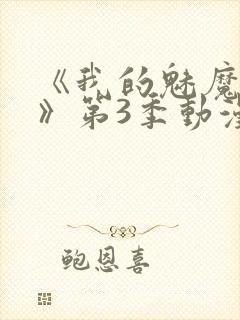 《我的魅魔
》第3季動漫
鲍恩喜